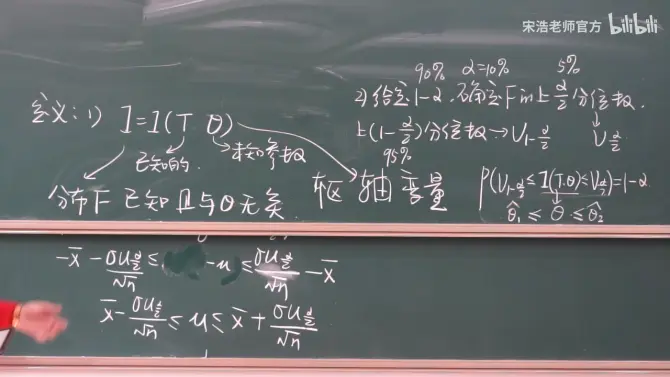 宋浩老师官方 bilibili
定义:1) I=I(T θ)
已知的 未知参数
分布F 已知且与θ无关
枢轴变量
90% α=10% 5%
2)给定1-α,确定F的上α/2分位数,
上(1-α/2)分位数→V_{1-α/2} V_{α/2}
95%
P(V_{1-α/2}≤I(T,θ)≤V_{α/2})=1-α
θ̂₁≤θ≤θ̂₂
-x̄-σU_{α/2}/√n≤ -u≤σU_{α/2}/√n-x̄
x̄-σU_{α/2}/√n≤u≤x̄+σU_{α/2}/√n